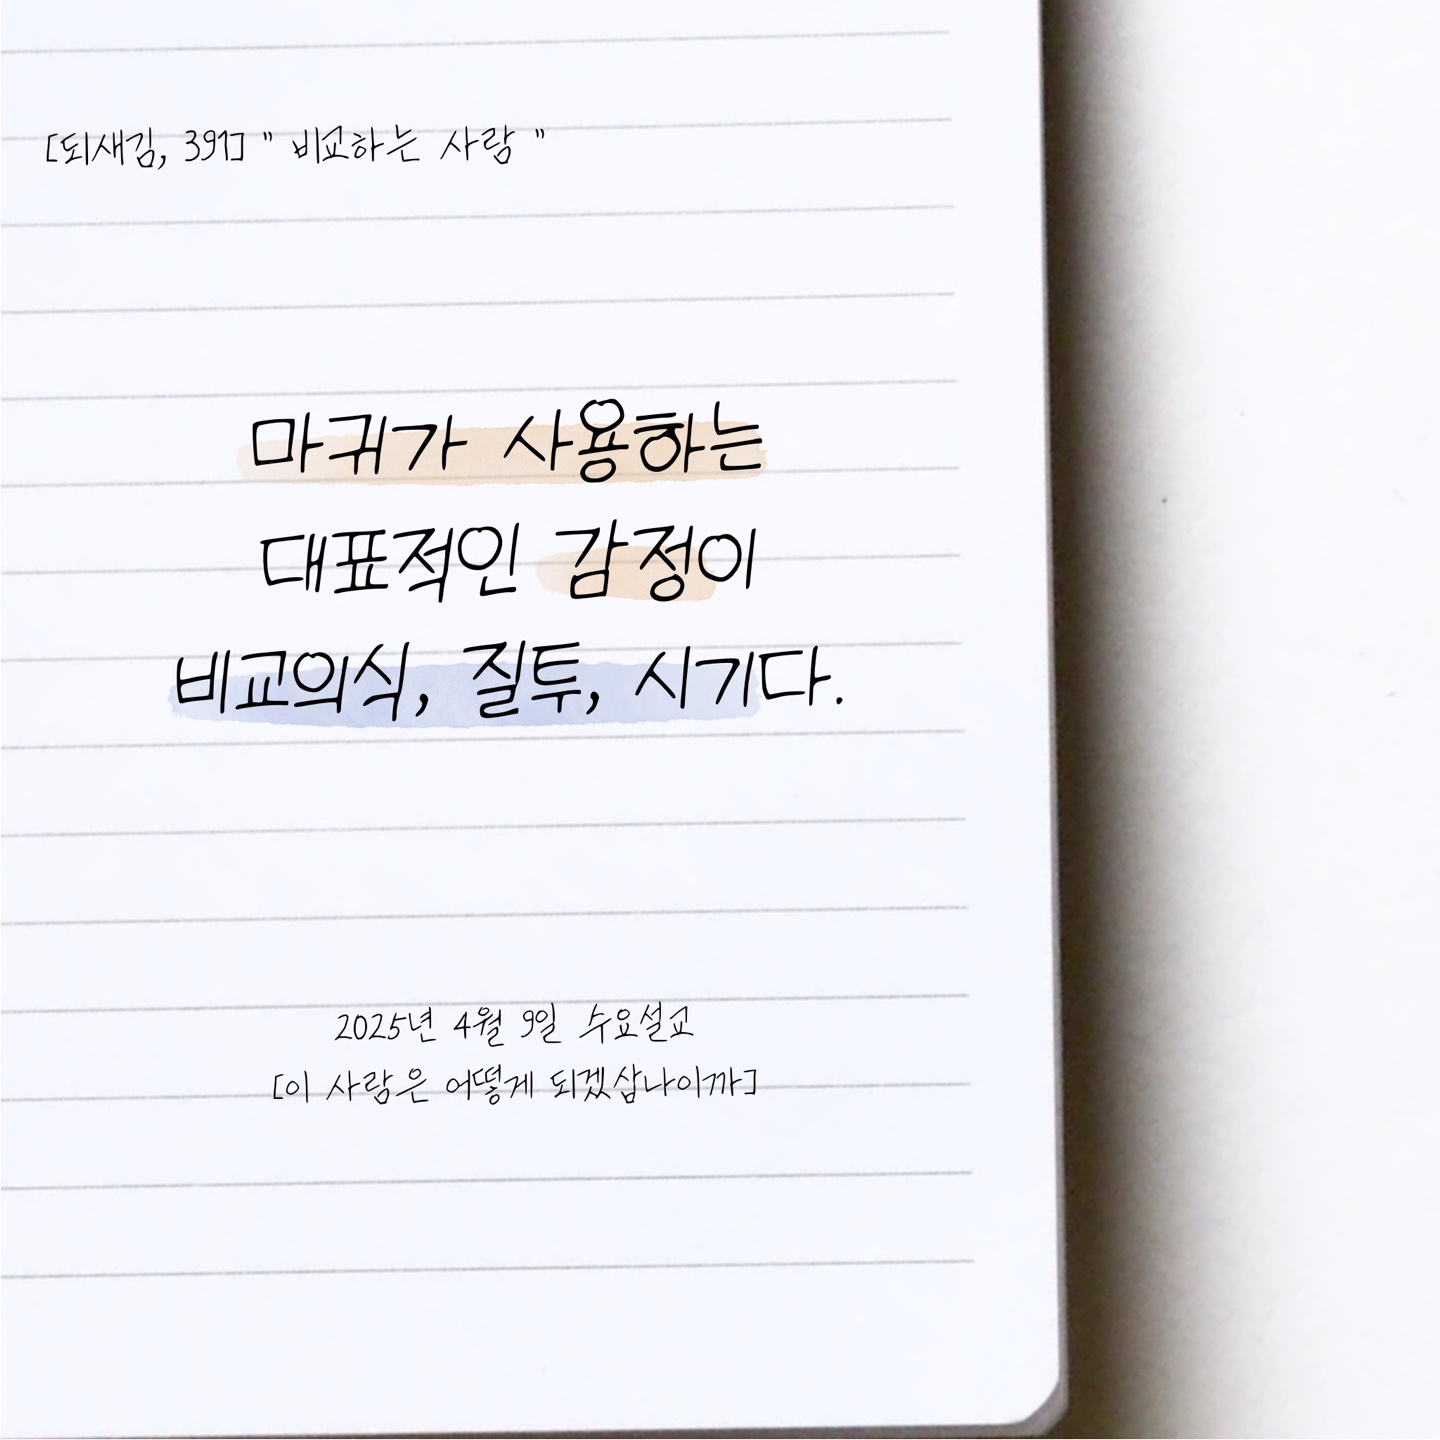 [되새김, 391] " 비교하는 사람 "
마귀가 사용하는
대표적인 감정이
비교의식, 질투, 시기다.
2025년 4월 9일 수요설교
[이 사람은 어떻게 되겠삽나이까]